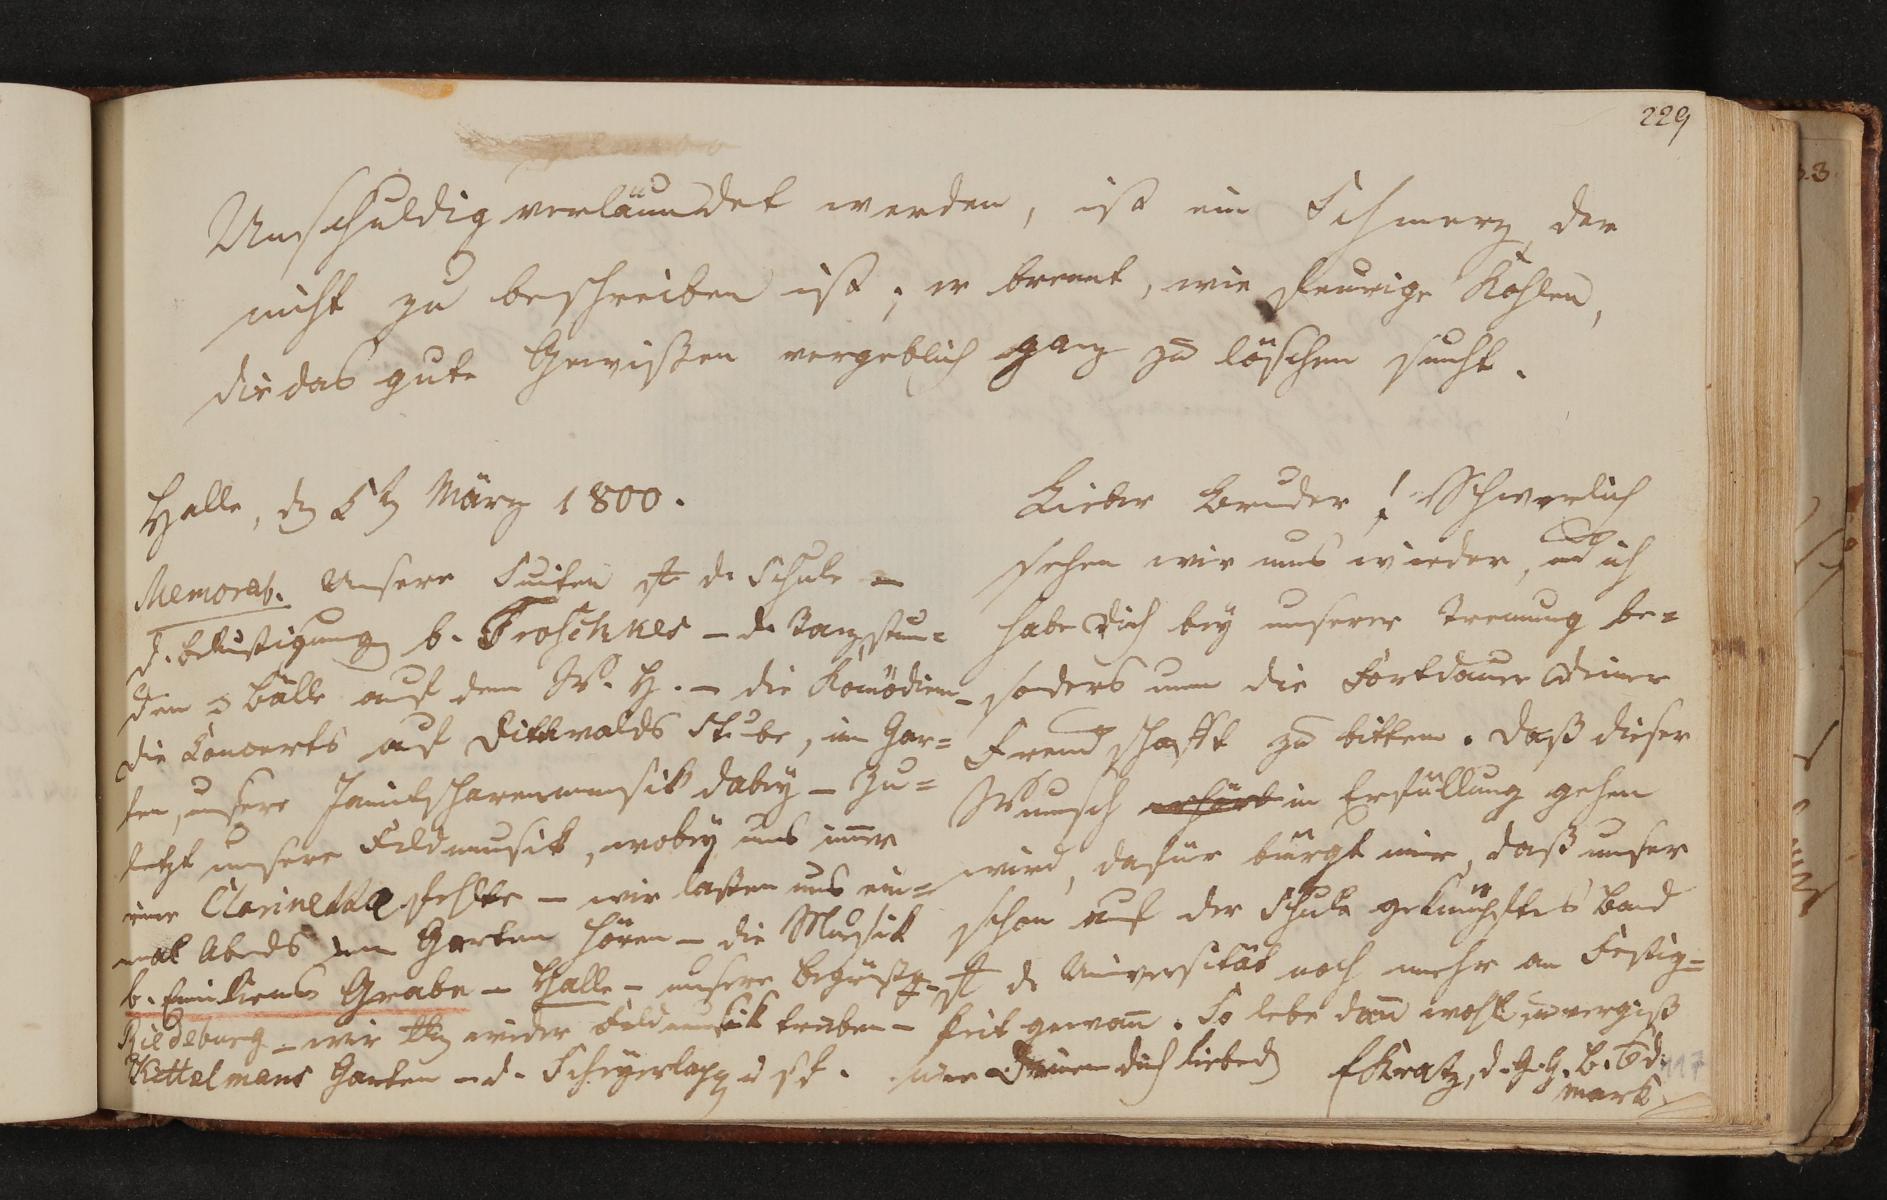 229
Unschuldig verläumdet werden, ist ein Schmerz, der
nicht zu beschreiben ist; er brennt, wie feurige Kohlen,
die das gute Gewißen vergeblich ganz zu löschen sucht.
Halle, d. 5t März 1800.
Memorab. Unsere Suiten auf d. Schule –
d. Belustigung b. Froschkes – d. Tanzstun-
den u Bälle auf dem W. H. – die Komödien –
die Concerts auf Dittwalds Stube, im Gar-
ten, unsere Janitscharenmusik dabey – Zu-
letzt unsere Feldmusik, wobey uns immer
eine Clarinette fehlte – wir laßen uns ein-
mal Abends im Garten hören – die Musik
b. Emiliens Grabe – Halle – unsere Begrüßg
Riedeburg – wir wieder Feldmusik trieben –
Kittelmans Garten – d. usf.
Lieber Bruder! Schwerlich
sehen wir uns wieder, und ich
habe dich bey unserer Trennung be-
sonders um die Fortdauer deiner
Freundschafft zu bitten. Daß dieser
Wunsch in Erfüllung gehen
wird, dafür bürgt mir, daß unser
schon auf der Schule geknüpftes Band
auf d. Universität noch mehr an Festig-
keit gewann. So lebe dann wohl, u vergiß
nie Deinen dich liebend
Kratz, d. G. G. B. a. d.
Mark
117